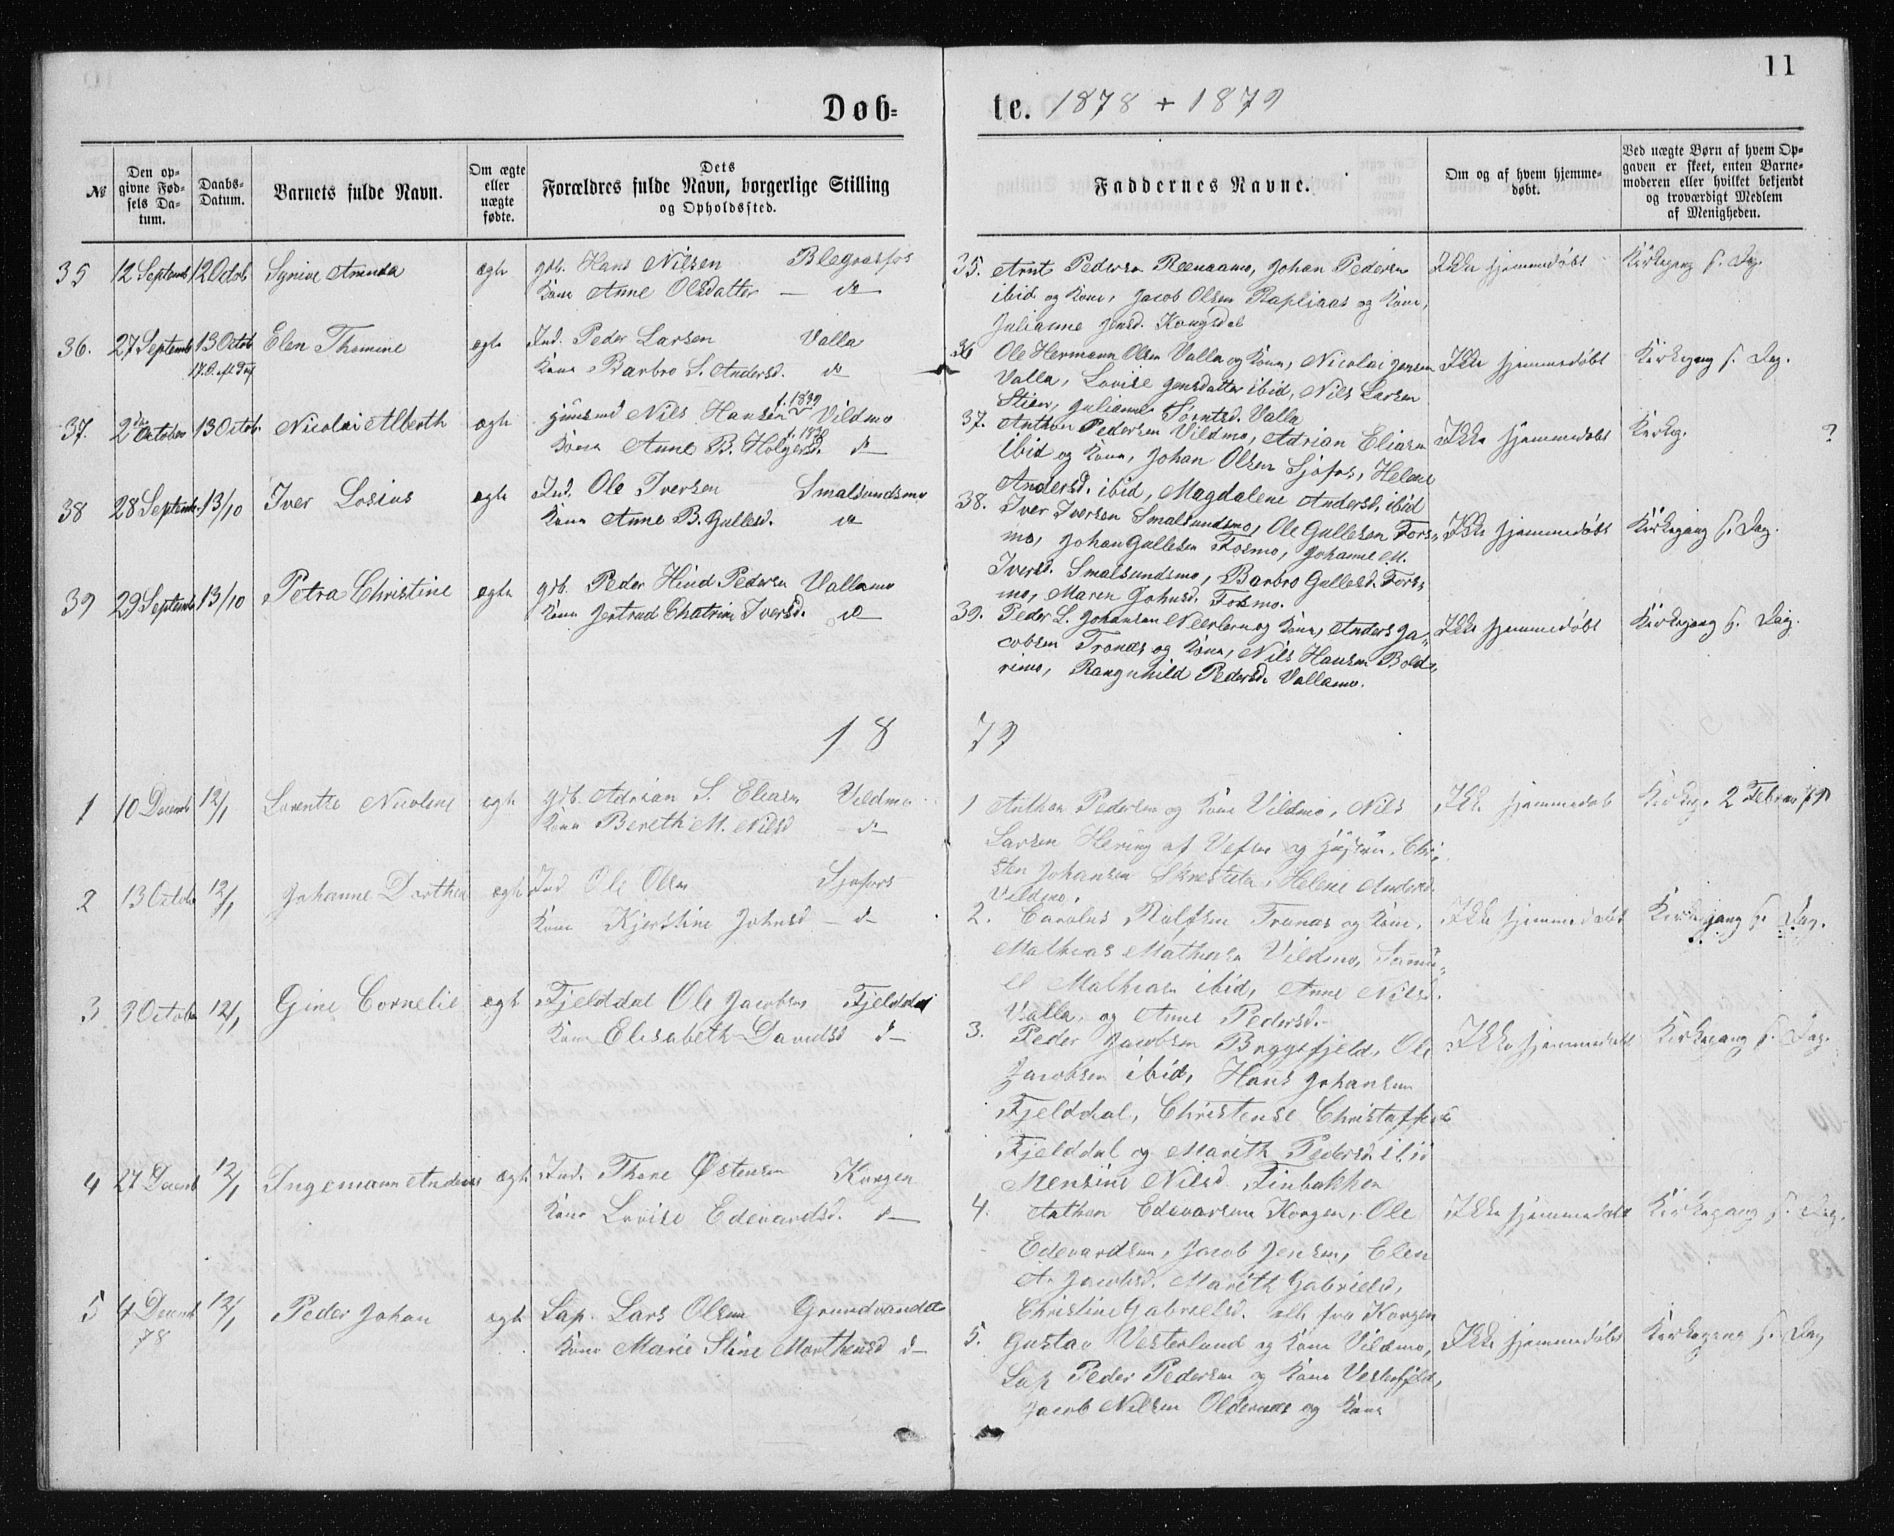 11
Døb= te. 1878 + 1879
№
Den op-
givne Fød-
sels Da-
tum.
Daabs-
Datum.
Barnets fulde Navn.
Om ægte
eller
uægte
fødte.
Dets
Forældres fulde Navn, borgerlige Stilling
og Opholdssted.
Faddernes Navne.
Om og af hvem hjemme-
døbt.
Ved uægte Børn af hvem Op-
gaven er skeet, enten Barne-
moderen eller hvilket bekjendt
og troværdigt Medlem
af Menigheden.
35 12 Septemb 12 Octob Synive Amanda ægte gdb. Hans Nilsen Blegrasfos
Kone Anne Olsdatter — do
35. Arnt Pedersen Reenaamo, Johan Pedersen
ibid og Kone, Jacob Olsen Rapliaas og Kone,
Julianne Jensd. Kongsdal
Ikke hjemmedøbt Kirkegang s. Dag.
36. 27 Septemb 13 Octob Elen Thomine ægte Ind. Peder Larsen Valla
Kone Barbro S. Andersd. do
36 Ole Hermann Olsen Valla og Kone, Nicolai Jensen
Valla, Lovise Jensdatter ibid, Nils Larsen
Stien, Julianne Sørntsd. Valla
Ikke hjemmedøbt Kirkegang s. Dag.
37. 2den October 13 Octob. Nicolai Alberth ægte Huusmd Nils Hansen f. 1839 Vildmo
Kone Anne B. Holgersd. do
37. Anthon Pedersen Vildmo, Adrian Eliasen
ibid og Kone, Johan Olsen Sjofos, Helene
Andersd. ibid, Magdalene Andersd. ibid
Ikke hjemmedøbt Kirkeg. ?
38 28 Septemb. 13/10 Iver Losius ægte Ind. Ole Iversen Smalsundsmo
Kone Anne B. Gullesd. do
38. Iver Iversen Smalsundsmo, Ole Gullesen Fors-
mo, Johan Gullesen Fosmo, Johanne M.
Iversd. Smalsundsmo, Barbro Gullesd. Fors-
mo, Maren Johnsd. Fosmo.
Ikke hjemmedøbt Kirkegang s. Dag.
39 29 Septemb 13/10 Petra Christine ægte gdb. Peder Hind Pedersen Vallamo
Kone Jertrud Chatrine Iversd. do
39. Peder L. Johansen Neerlern og Kone, Anders Ja-
cobsen Tronæs og Kone, Nils Hansen Bold-
rimo, Rangnhild Pedersd. Vallamo.
Ikke hjemmedøbt Kirkegang s. Dag.
18 79
1 10 Decemb 12/1 Lorentze Nicoline ægte gdb. Adrian S. Eliasen Vildmo
Kone Bereth M. Nilsd — do
1 Anthon Pedersen og Kone Vildmo, Nils
Larsen Hering af Vefsn og Hustru, Chri-
sten Johansen, Helene Andersd.
Vildmo.
Ikke hjemmedøb Kirkeg. 2 Februar 79
2 13 Octob 12/1 Johanne Dorthea ægte Ind Ole Olsen Sjofors
Kone Kjerstine Johnsd — do
2. Carolus Rølfsen Tronæs og Kone,
Mathias Mathisen Vildmo, Samu-
el Mathiasen ibid, Anne Nilsd.
Valla, og Anne Pedersd.
Ikke hjemmedøbt Kirkegang s. Dag.
3 9 Octob 12/1 Gine Cornelie ægte Fjelddal Ole Jacobsen Fjelddal
Kone Elisabeth Davidsd do
3. Peder Jacobsen Bryggfjeld, Ole
Jacobsen ibid, Hans Johansen
Fjelddal, Christense Christoffersd
Fjelddal og Marith Pedersd. ibid
Mensine Nilsd. Finbakken
Ikke hjemmedøbt Kirkegang s. Dag.
4 27 Decemb 12/1 Ingemann Andreas ægte Ind. Thore Østensen Korgen
Kone Lovise Edevardsd. do
4. Anthon Edevarsen Korgen, Ole
Edevardsen, Jacob Jensen, Elen
A. Jacobsd. Marith Gabrielsd,
Christine Gabrielsd. alle fra Korgen
Ikke hjemmedøbt Kirkegang s. Dag.
5 4 Decemb 78 12/1 Peder Johan ægte Lap. Lars Olsen Grundvandet
Kone Marie Stine Morthensd do
5. Gustav Vesterlund og Kone Vildmo,
Lap Peder Pedersen og Kone Vesterfjeld,
Jacob Nilsen Oldernæs og Kone
Ikke hjemmedøbt Kirkegang s. Dag